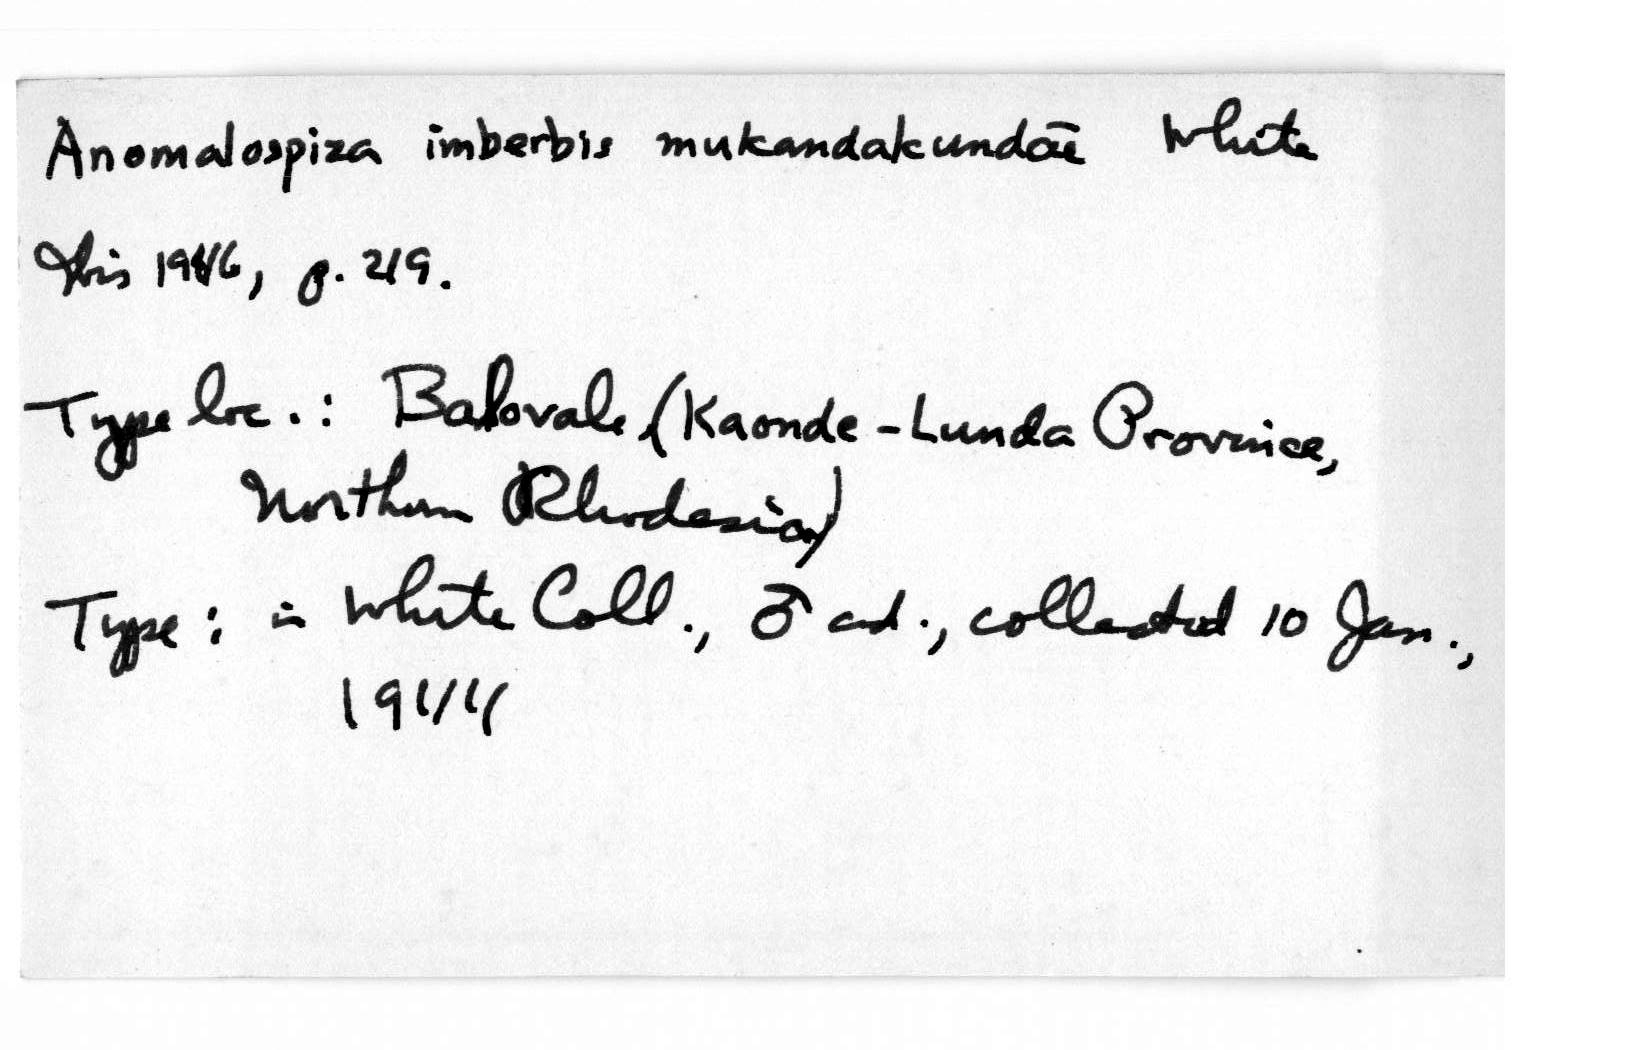 Anomalospiza imberbis mukandakundāe White
Ibis 1946, p. 219.
Type loc.: Balovale (Kaonde-Lunda Province,
Northern Rhodesia)
Type: in White Coll., ♂ ad., collected 10 Jan.,
1944